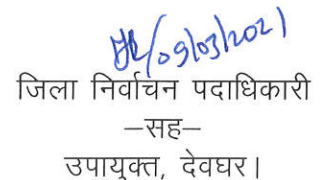 09/03/2021
जिला निर्वाचन पदाधिकारी
–सह–
उपायुक्त, देवघर।